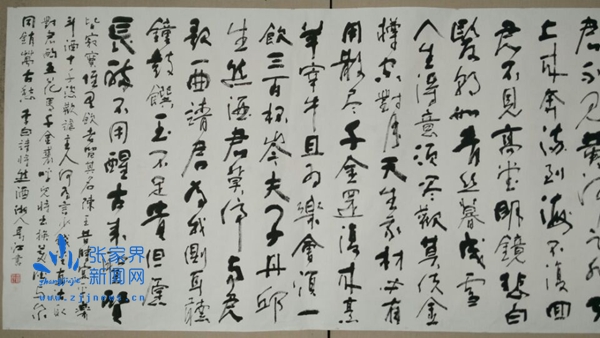 君不見黄河之水
上來奔流到海不復回
君不見高堂明鏡悲白
髮朝如青丝暮成雪
人生得意須尽歡莫使金
樽空對月天生我材必有
用散尽千金還復來烹
羊宰牛且为樂會須一
飲三百杯岑夫子丹邱
生進酒君莫停与君
歌一曲請君为我側耳聽
鐘鼓饌玉不足貴但願
長醉不用醒古来聖賢
皆寂寞惟有飲者留其名陳王昔時宴平樂
斗酒十千恣歡謔主人何为言少錢須沽取
對君酌五花馬千金裘呼兒將出換美酒与尔
同銷萬古愁李白詩將進酒
张家界新闻网
www.zjjnews.cn